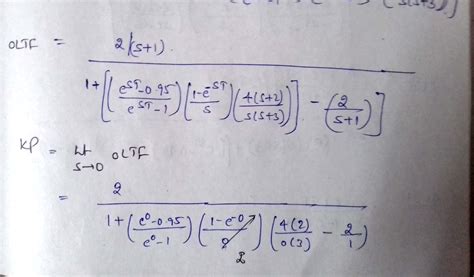 OLTF = 2/(s+1) / 1+[[(e^{ST}-0.95 / e^{ST}-1)(1-e^{-ST} / s)(4(s+2) / s(s+3))] - (2 / s+1)]
KP = Lt s→0 OLTF
= 2 / 1+(e^0-0.95 / e^0-1)(1-e^{-0} / 0)(4(2) / 0(3) - 2 / 1)